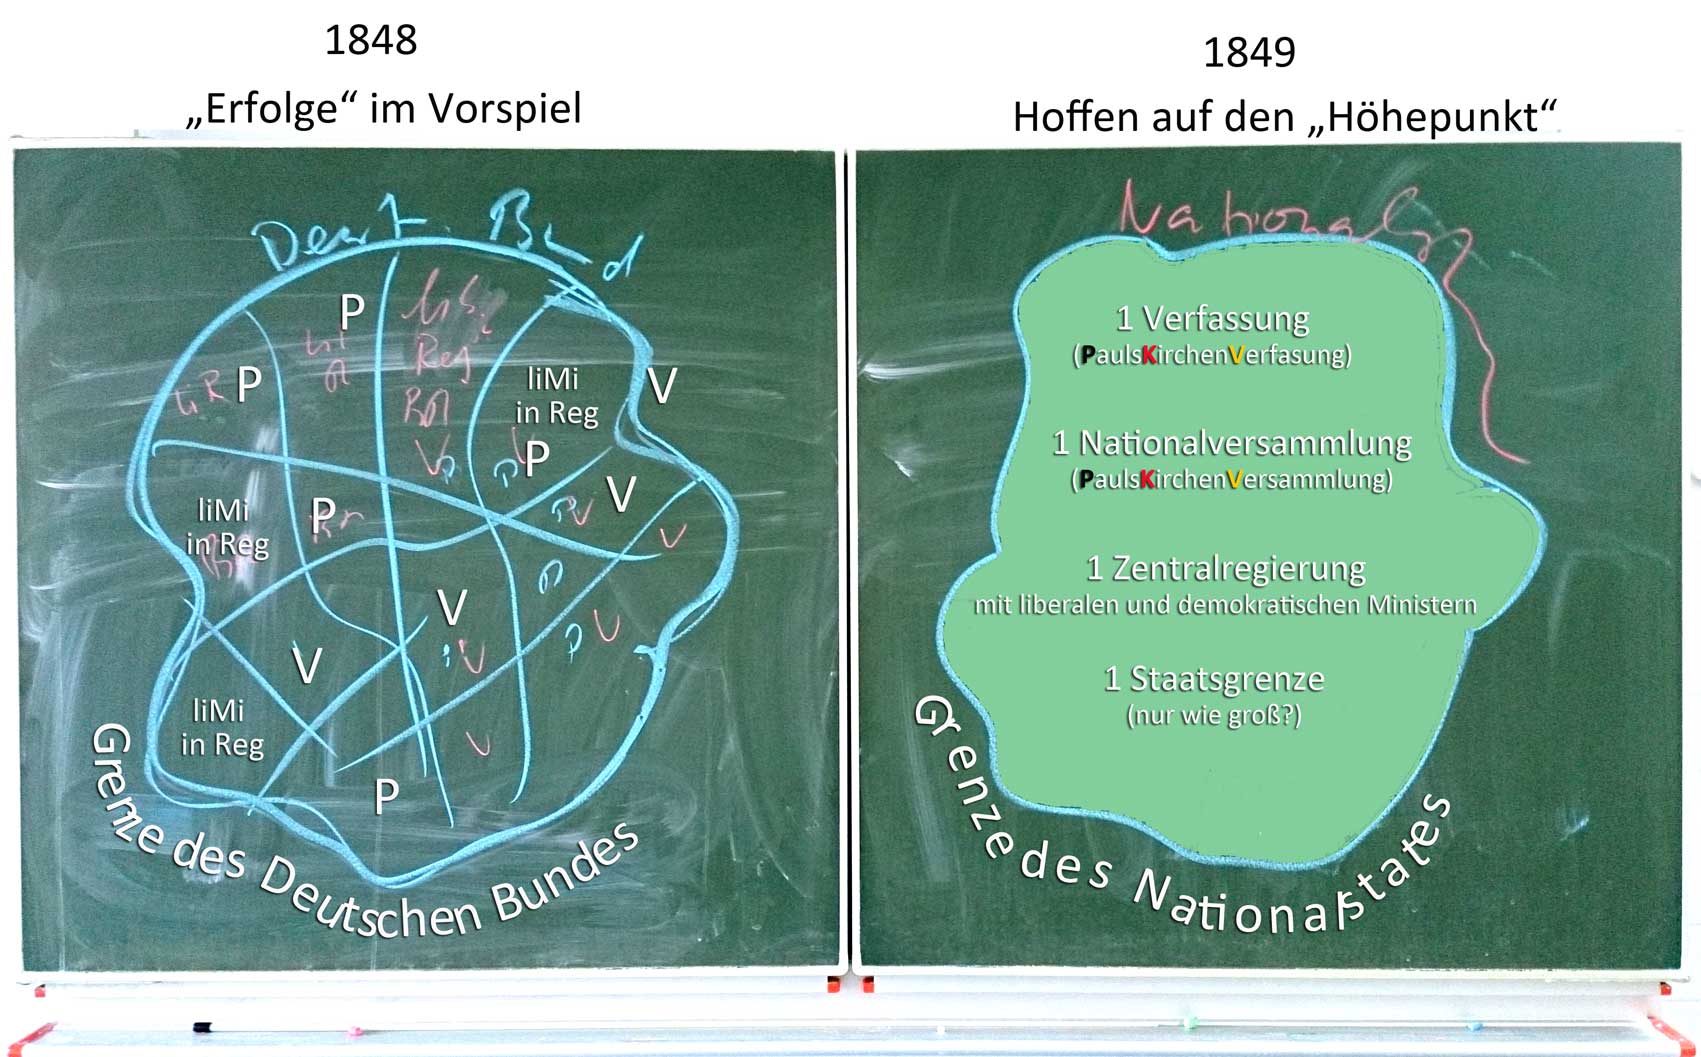 1848
„Erfolge“ im Vorspiel
Deut. Bund
P
lib.
Reg
P
liMi
in Reg
V
V
P
P
V
liMi
in Reg
P
V
V
V
V
P
V
V
liMi
in Reg
V
P
Grenze des Deutschen Bundes
1849
Hoffen auf den „Höhepunkt“
1 Verfassung
(PaulsKirchenVerfasung)
1 Nationalversammlung
(PaulsKirchenVersammlung)
1 Zentralregierung
mit liberalen und demokratischen Ministern
1 Staatsgrenze
(nur wie groß?)
Grenze des Nationalstates